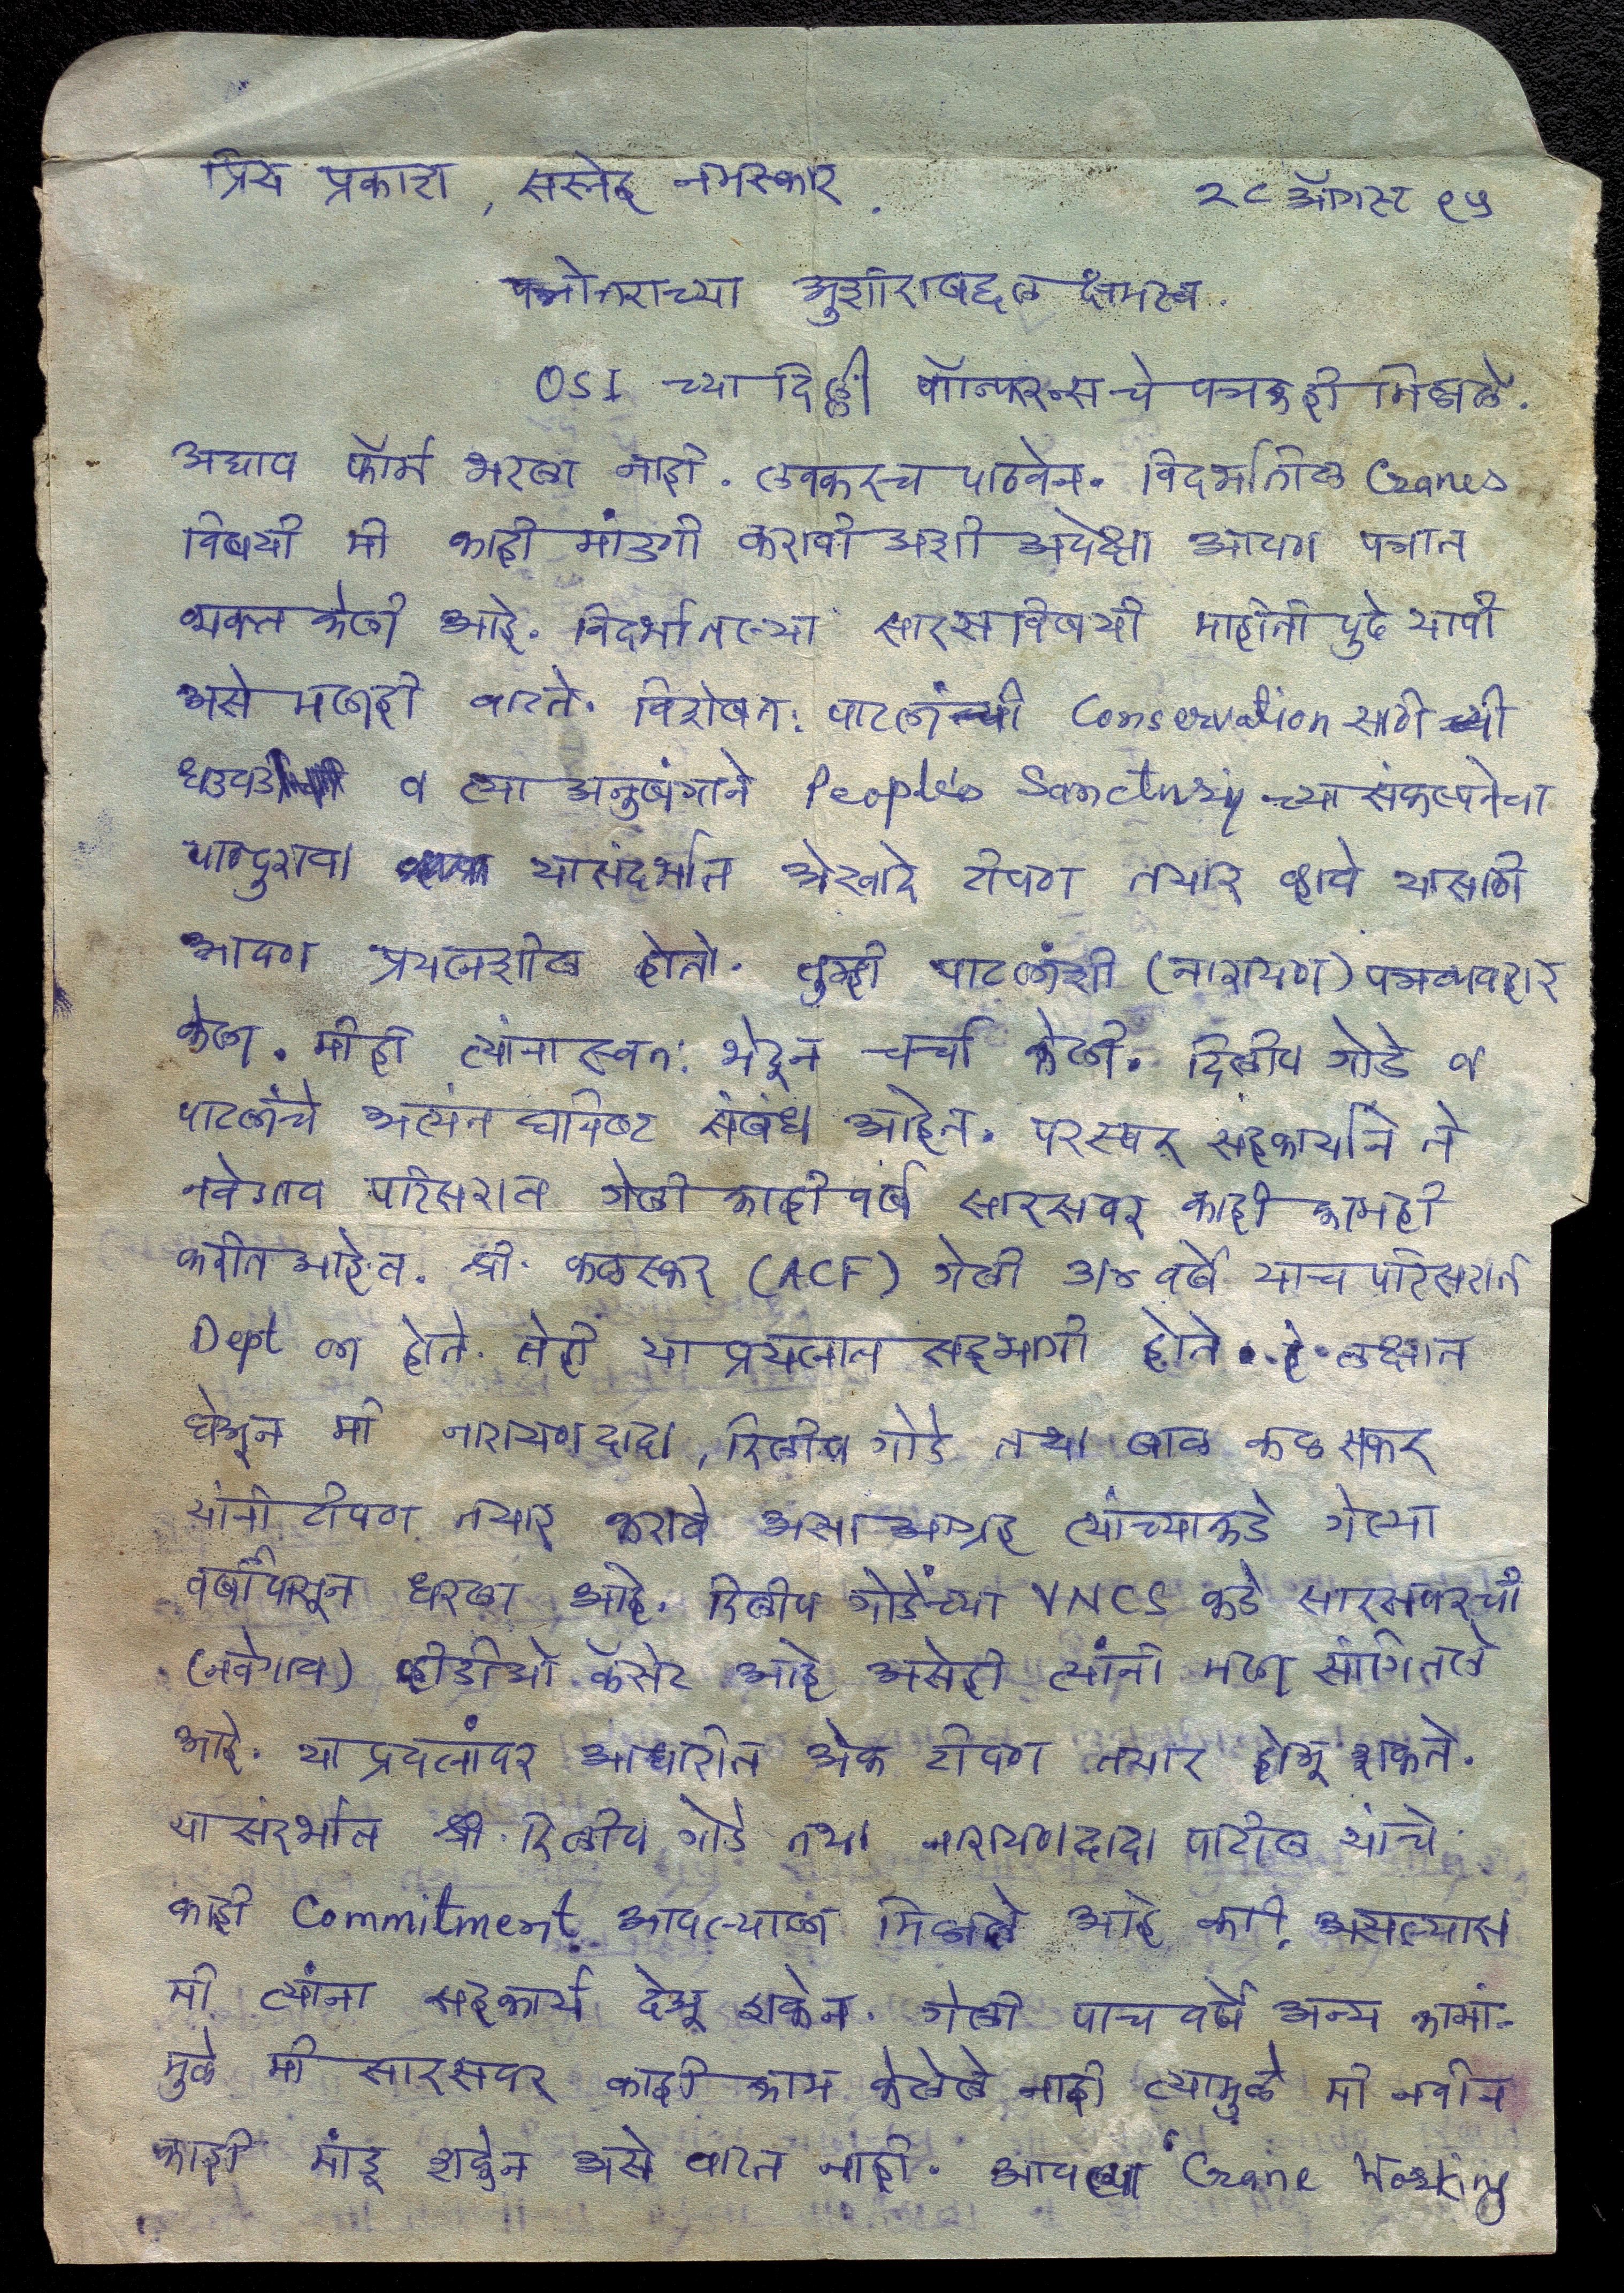 प्रिय प्रकाश, सस्नेह नमस्कार. २८ ऑगस्ट ९५
पत्रोत्तराच्या अुशीराबद्दल क्षमस्व.
OSI च्या दिल्ली कॉन्फरन्सचे पत्रकही मिळाले.
अद्याप फॉर्म भरला नाही. लवकरच पाठवेन. विदर्भातील Cranes
विषयी मी काही मांडणी करावी अशी अपेक्षा आपण पत्रात
व्यक्त केली आहे. विदर्भातल्या सारसाविषयी माहीती पुढे यावी
असे मलाही वाटते. विशेषतः पाटलांची Conservation साठीची
धडपड व त्या अनुषंगाने People's Sanctury च्या संकल्पनेचा
पाठपुरावा यासंदर्भात अेखादे टीपण तयार व्हावे यासाठी
आपण प्रयत्नशील होतो. तुम्ही पाटलांशी (नारायण) पत्रव्यवहार
केला. मीही त्यांना स्वतः भेटून चर्चा केली. दिलीप गोडे व
पाटलांचे अत्यंत घनिष्ट संबंध आहेत. परस्पर सहकार्याने ते
नवेगाव परिसरात गेली काही वर्षे सारसवर काही कामही
करीत आहेत. श्री. कळस्कर (ACF) गेली ३/४ वर्षे याच परिसरात
Dept ला होते. तेही या प्रयत्नात सहभागी होते. हे लक्षात
घेअून मी नारायणदादा, दिलीप गोडे तथा बाळ कळसकर
यांनी टीपण तयार करावे असा आग्रह त्यांच्याकडे गेल्या
वर्षापासून धरला आहे. दिलीप गोडेंच्या VNCS कडे सारसवरची
(नवेगाव) व्हीडीओ कॅसेट आहे असेही त्यांनी मला सांगितले
आहे. या प्रयत्नांवर आधारीत अेक टीपण तयार होअू शकते.
या संदर्भात श्री. दिलीप गोडे तथा नारायणदादा पाटील यांचे
काही Commitment आपल्याला मिळाले आहे का? असल्यास
मी त्यांना सहकार्य देअू शकेन. गेली पाच वर्षे अन्य कामां-
मुळे मी सारसवर काही काम केलेले नाही त्यामुळे मी नवीन
काही मांडू शकेन असे वाटत नाही. आपल्या "Crane Working